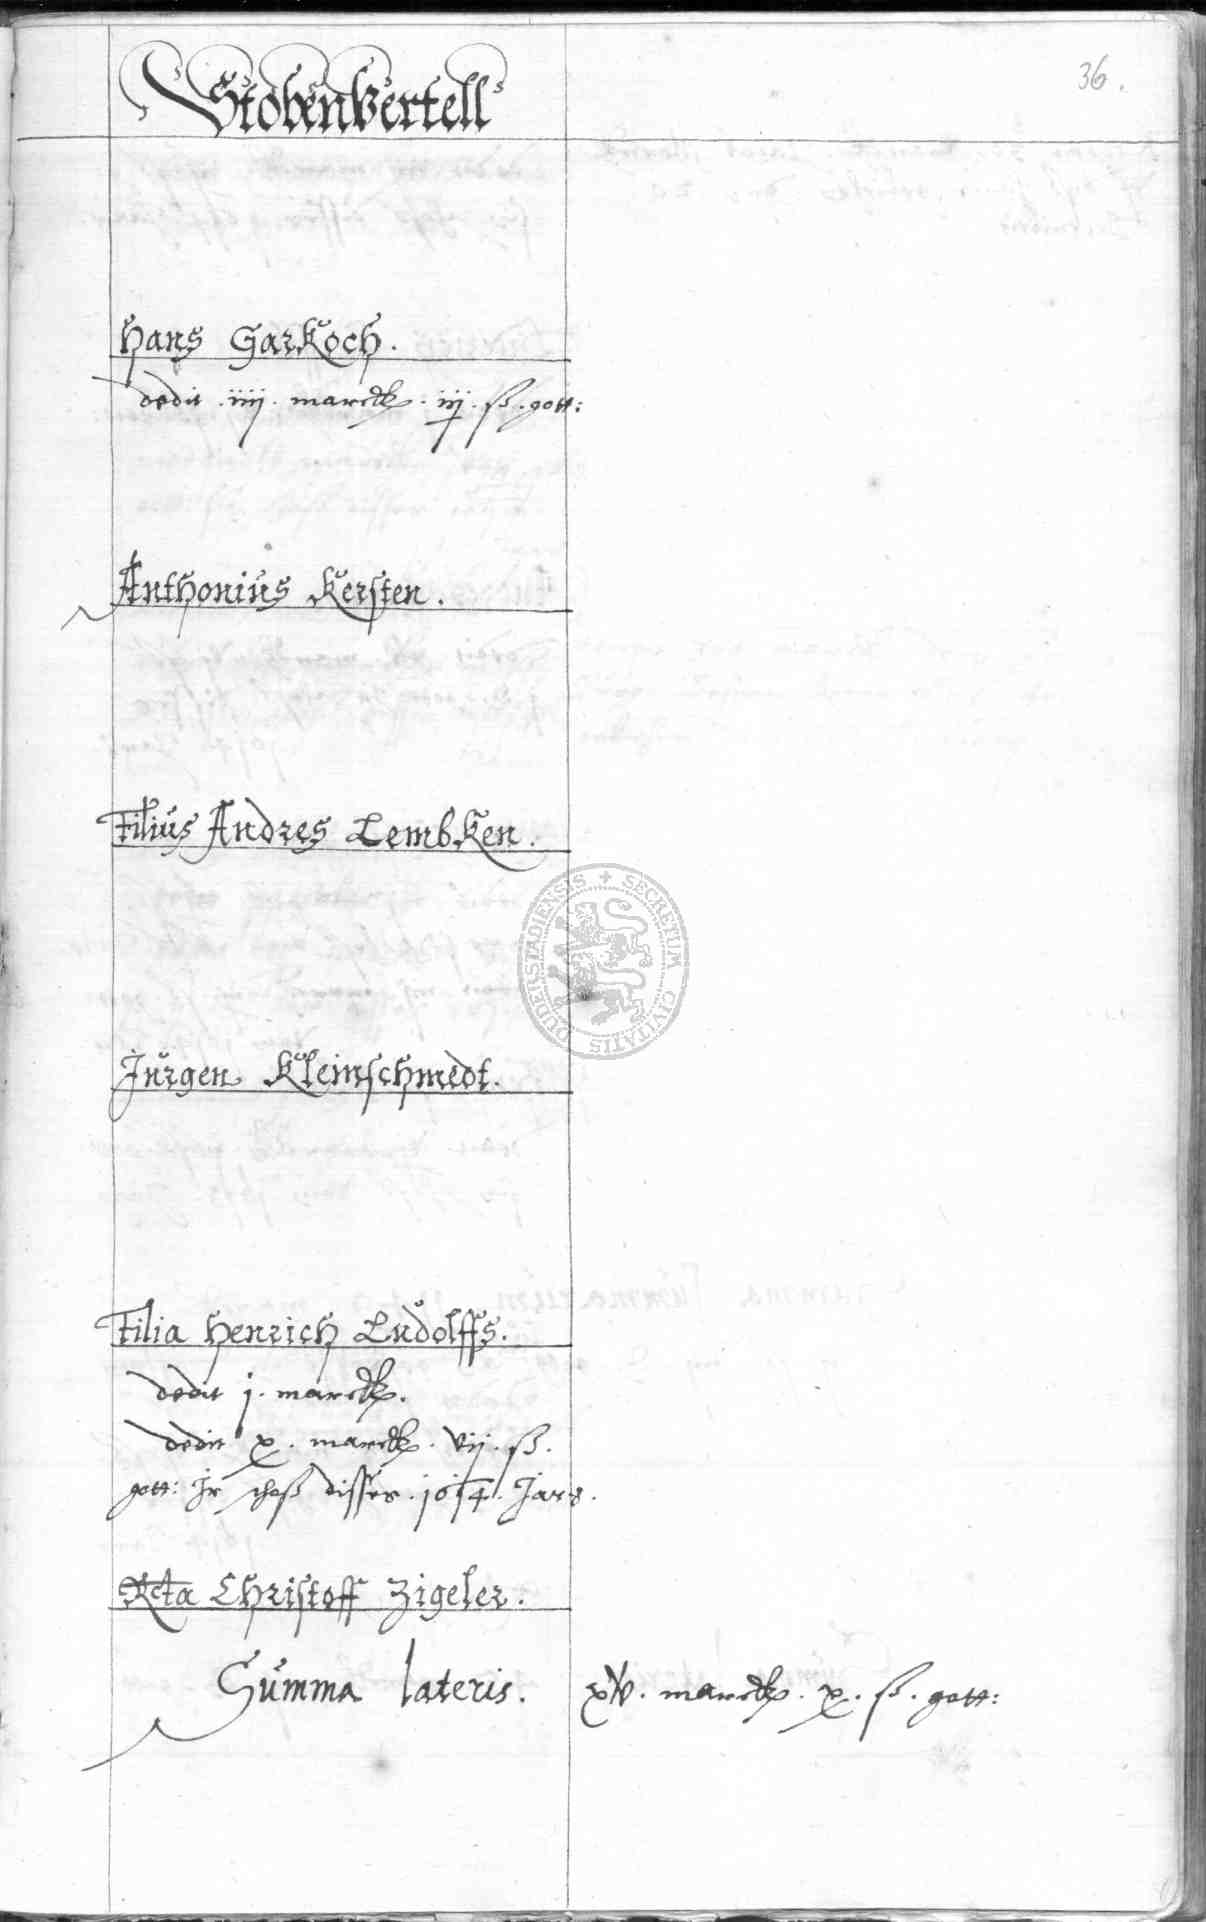 36.
Stobenvertell
Hans Garkoch.
dedit .iiij. marck. iij. ß. gott:
Anthonius Kersten.
Filius Andres Lembken.
SECRETUM CIVITATIS DUDERSTADIENSIS
Jurgen Kleinschmedt.
Filia Henrich Ludolffs.
dedit j. marck.
dedit x. marck. vij. ß.
gott: Jr schoß disser .1614. Jars.
Christoff Zigeler.
Summa lateris. xv. marck. x. ß. gott: